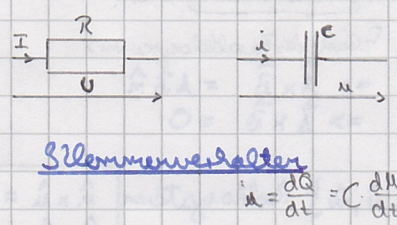 R
I
U
C
i
u
Klemmenverhalten
i = dQ/dt = C · du/dt